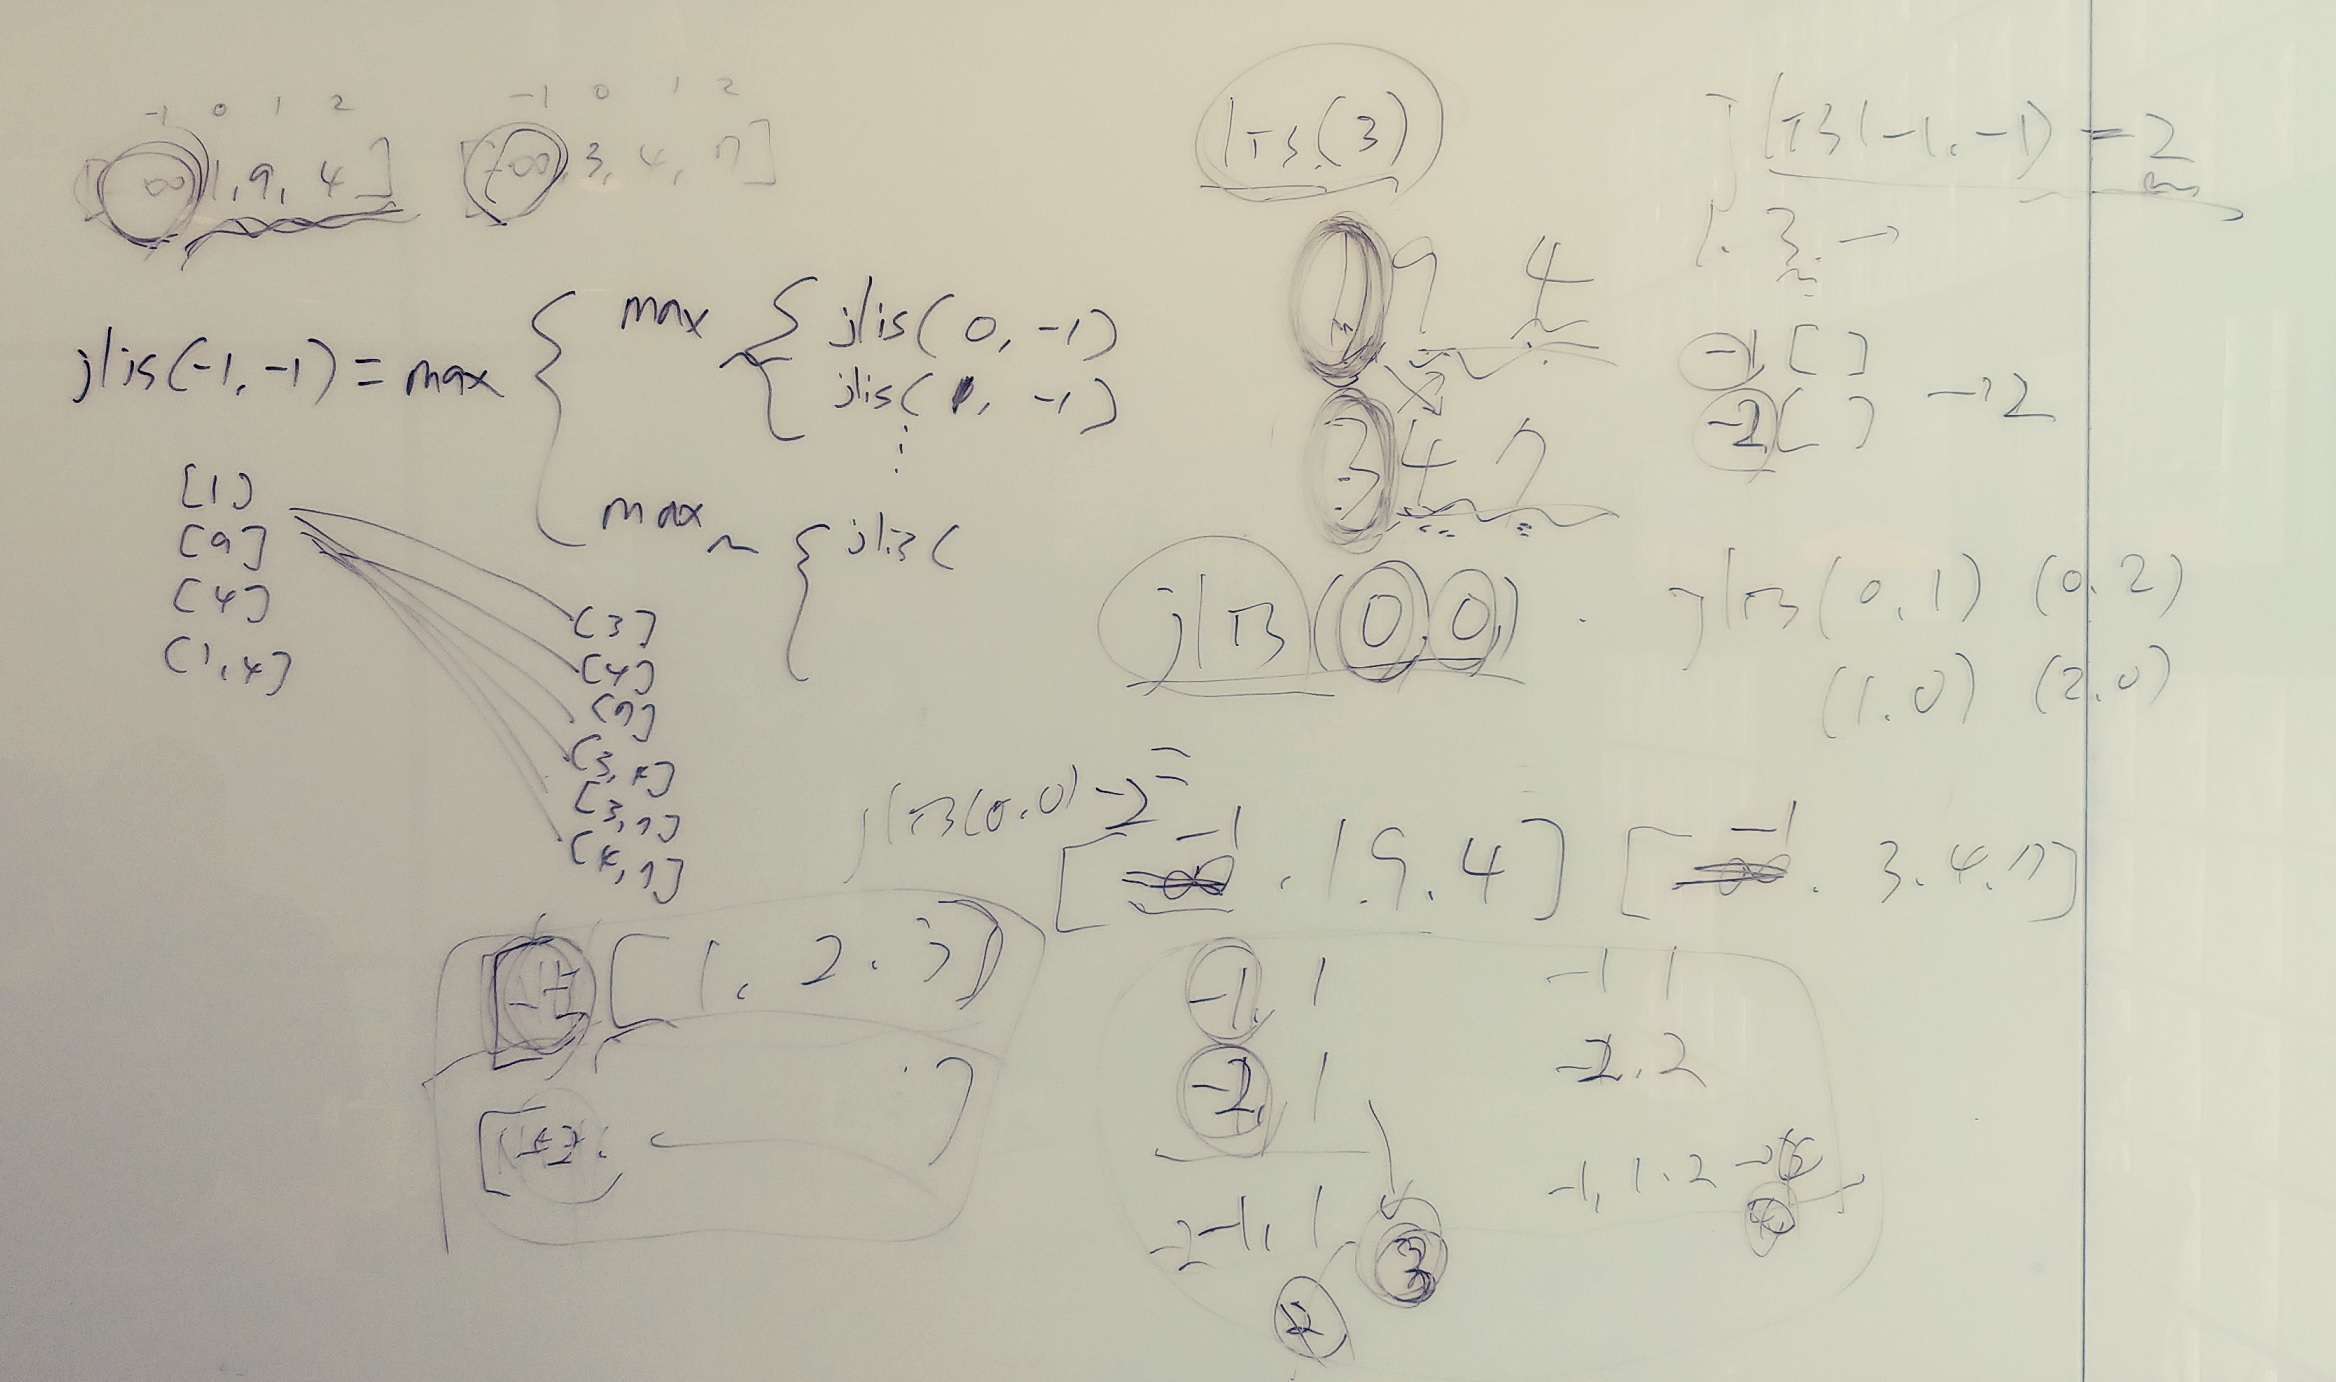 -1 0 1 2
-1 0 1 2
[-∞, 1, 9, 4]
[-∞, 3, 4, 7]
jlis(-1, -1) = max { max { jlis(0, -1)
jlis(1, -1)
⋮
max { jlis(
[1]
[9]
[4]
[1, 4]
[3]
[4]
[7]
[3, 4]
[3, 7]
[4, 7]
lis(3)
1 9 4
3 4 7
jlis(-1, -1) = 2
1. 3. →
-1 [ ]
-2 [ ] → 2
jlis(0, 0)
jlis(0, 1) (0, 2)
(1, 0) (2, 0)
jlis(0, 0) - 2 =
-1 -1
[-∞, 1, 9, 4] [-∞, 3, 4, 7]
[1, 2, 3]
-1, 1
-2, 1
-2 -1, 1
3
2
-1 1
-2, 2
-1, 1, 2